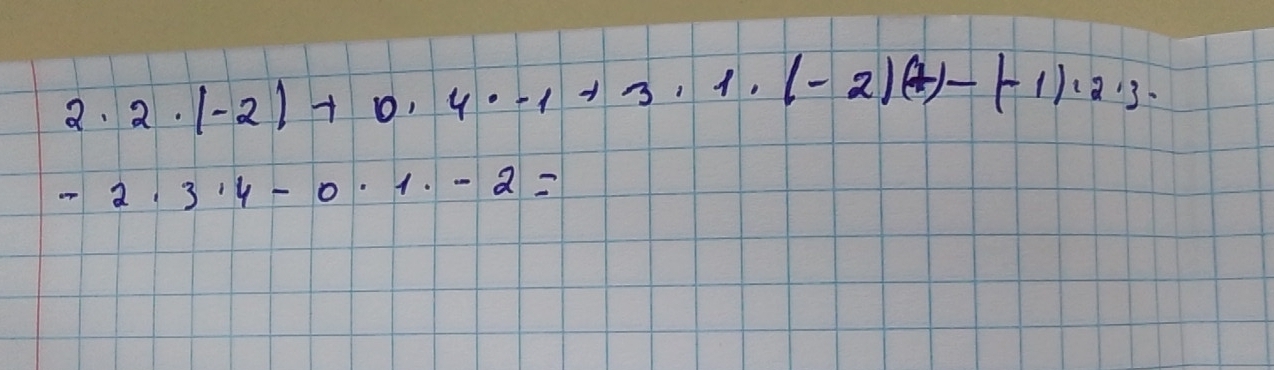 2 · 2 · (-2) + 0 · 4 · -1 + 3 · 1 · (-2) - (-1) · 2 · 3 -
- 2 · 3 · 4 - 0 · 1 · - 2 =